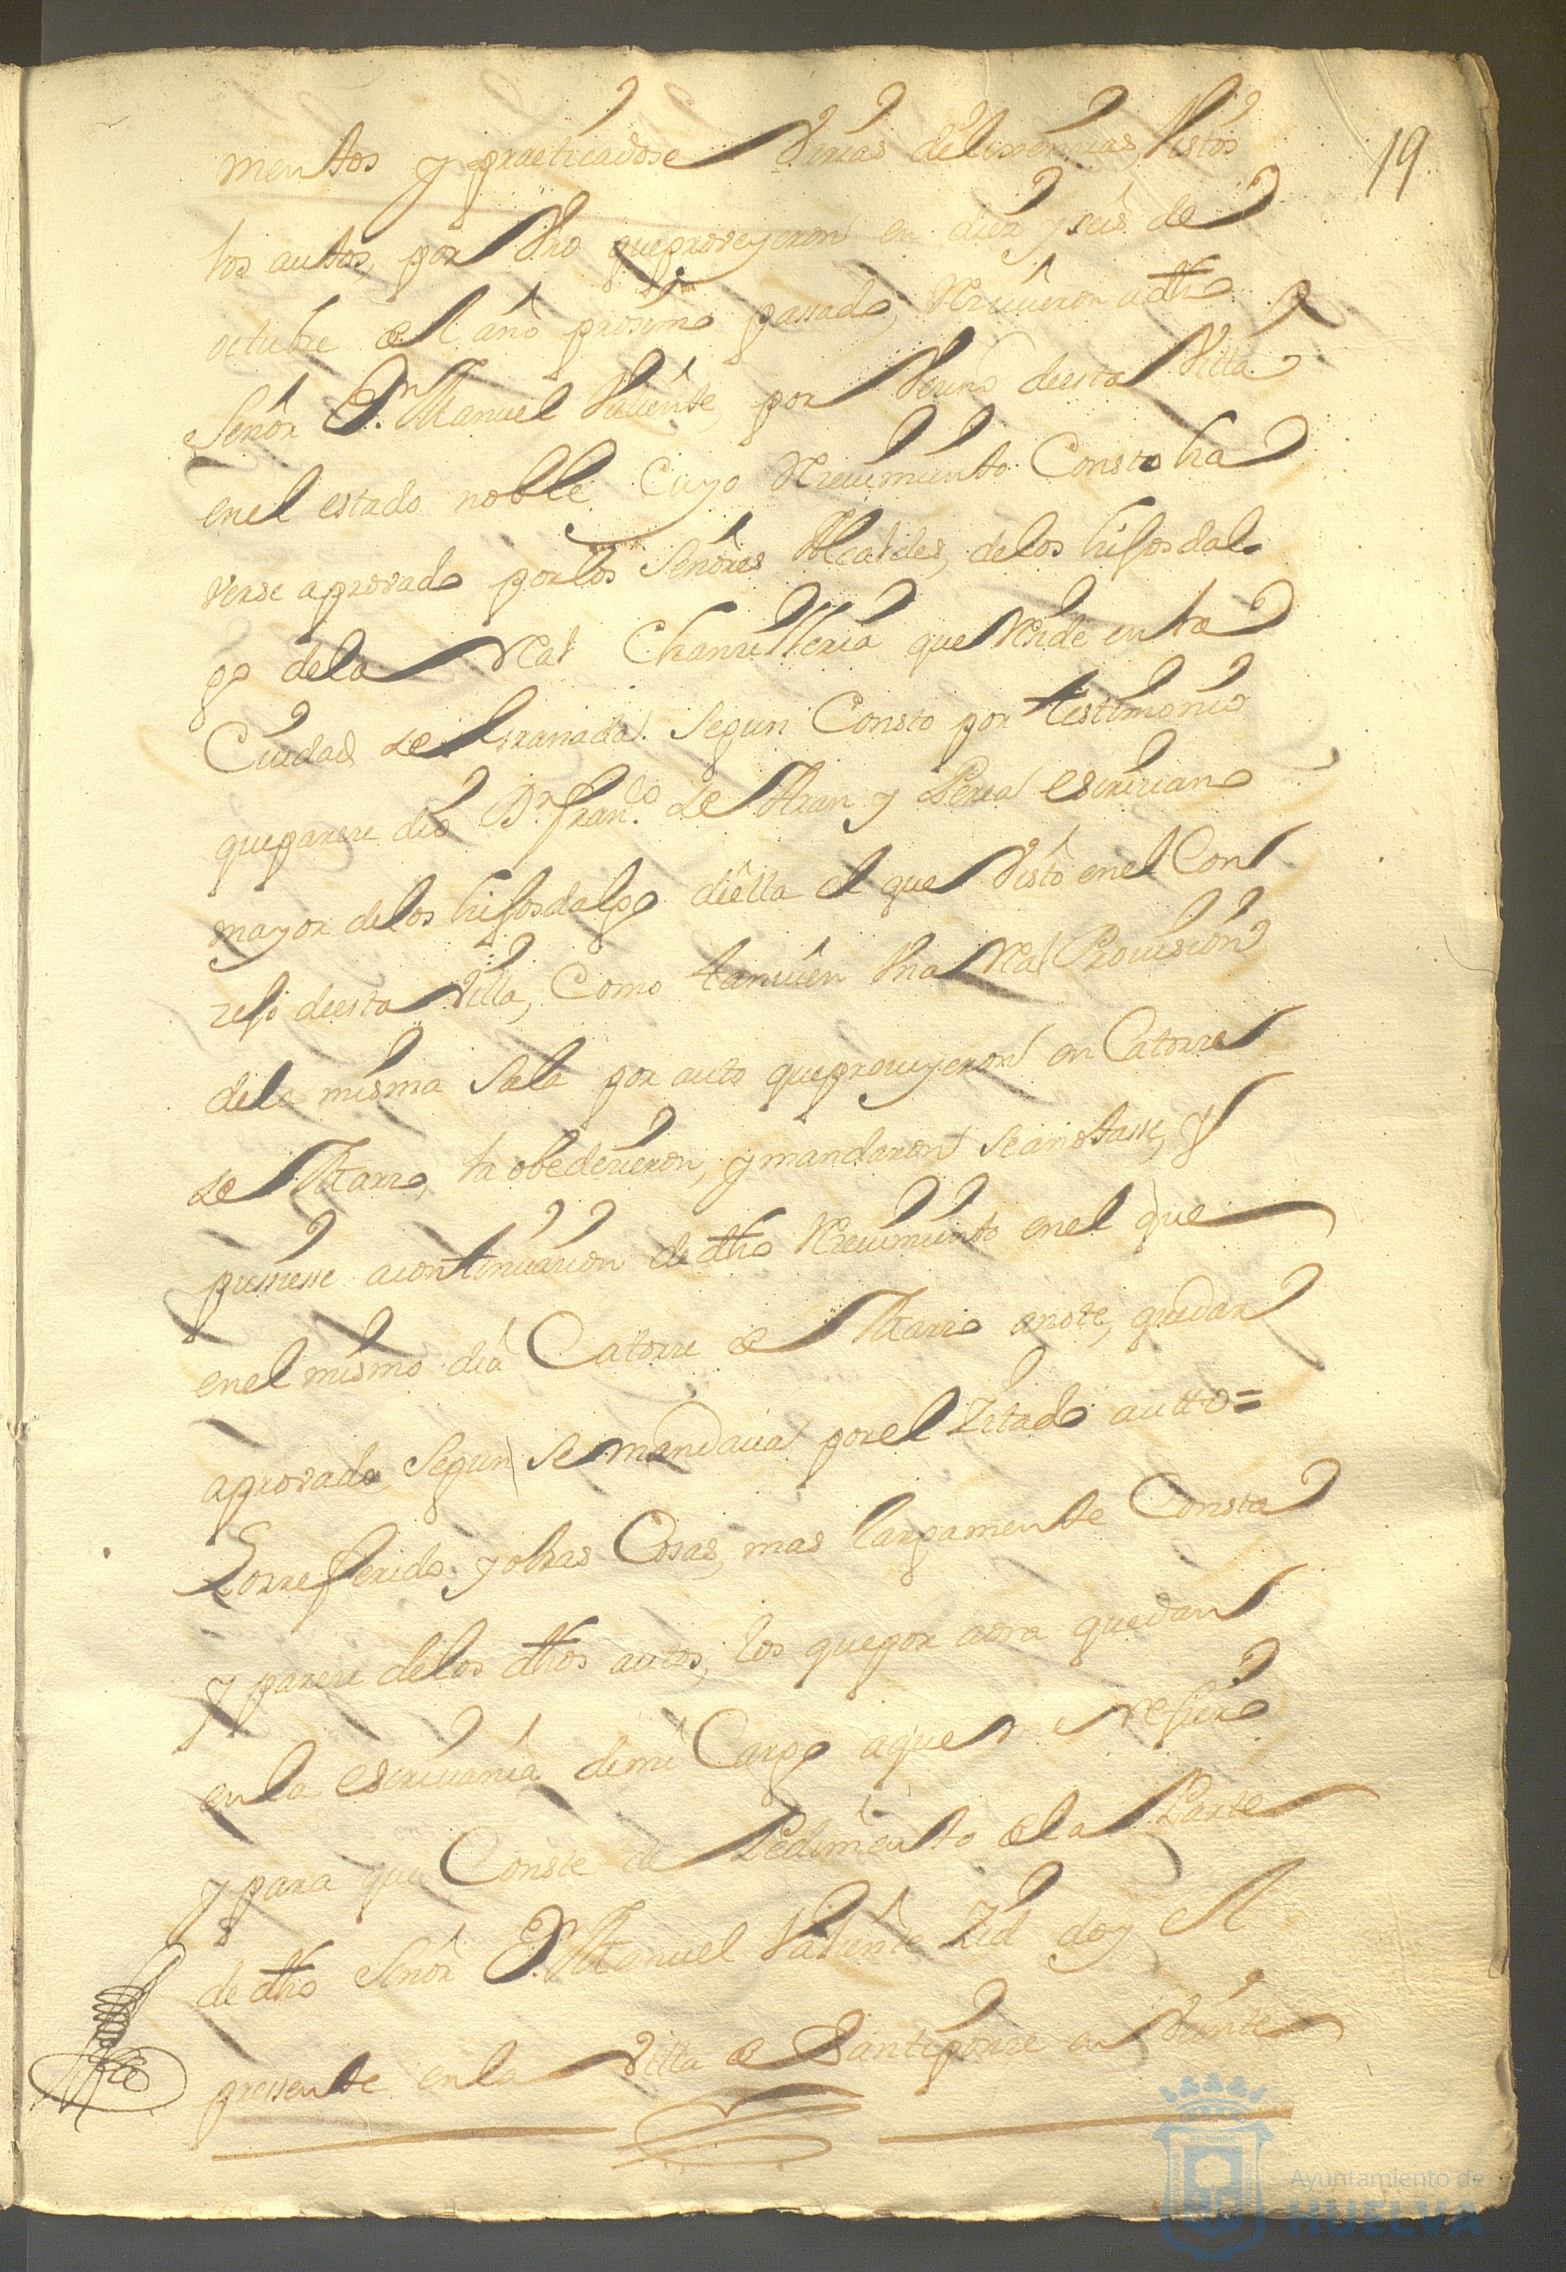 19
mentos y practicadose Varias deligencias, Vistos
los autos, por Uno que proveyeron en diez y seis de
octubre del año proximo passado, Recivieron a dho
Señor Dn. Manuel Valiente, por Vecino de esta Villa
en el estado noble Cuyo Recivimiento Consto ha
verse aprovado por los Señores Alcaldes, de los hijosdal
go de la Real Chanzilleria que Reside en la
Ciudad de Granada. Segun Consto por testimonio
que parece dio Dn. Franco. de y escrivano
mayor de los hijosdalgo della el que Visto en el Con
zejo de esta Villa, Como tanvien Una Real Provision
de la misma Sala por auto que proveyeron en Catorze
de Marzo, la obedecieron, y mandaron Se anottasse, y
pusiesse a continuacion de dho Recivimiento en el que
en el mismo dia Catorze de Marzo anote, quedar
aprovado, Segun Se mandava por el Zitado autto=
Lo rreferido y otras Cosas, mas largamente Consta
y parece de los dhos autos, los que por aora quedan
en la escrivania de mi Cargo a que me refiero
y para que Conste de Pedimento de la Parte
de dho Señor Dn. Manuel Valiente Zid doy el
pressente en la Villa de Santiponze en Veinte
Ayuntamiento de
HUELVA